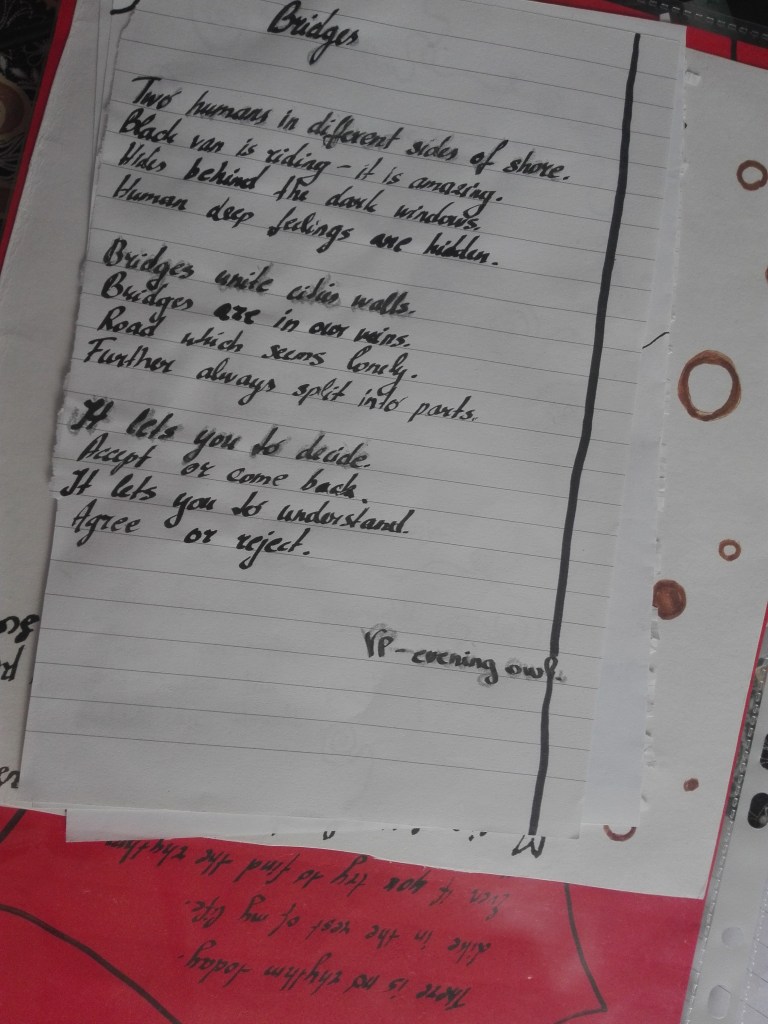 Bridges
Two humans in different sides of shore.
Black van is riding – it is amazing.
Hides behind the dark windows.
Human deep feelings are hidden.
Bridges unite cities walls.
Bridges are in our veins.
Road which seems lonely.
Further always split into parts.
It lets you to decide.
Accept or come back.
It lets you to understand.
Agree or reject.
VP – evening owl.
There is no rhythm today.
Like in the rest of my life.
Even if you try to find the rhythm